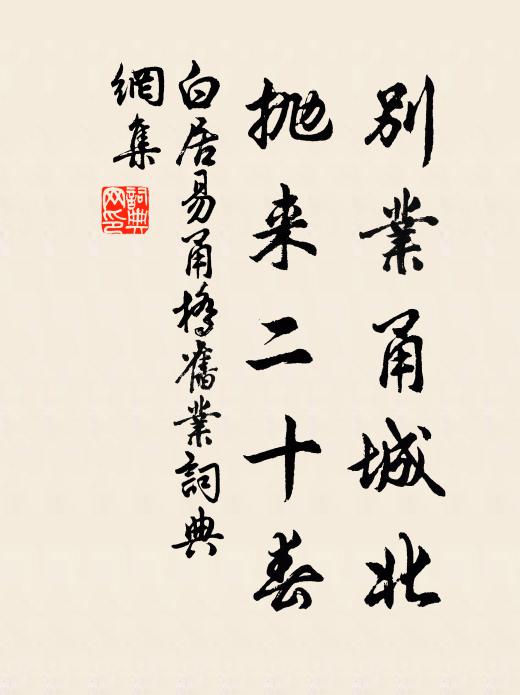 别業甬城北
抛来二十春
白居易甬橋舊業詞典
網集
詞典網印